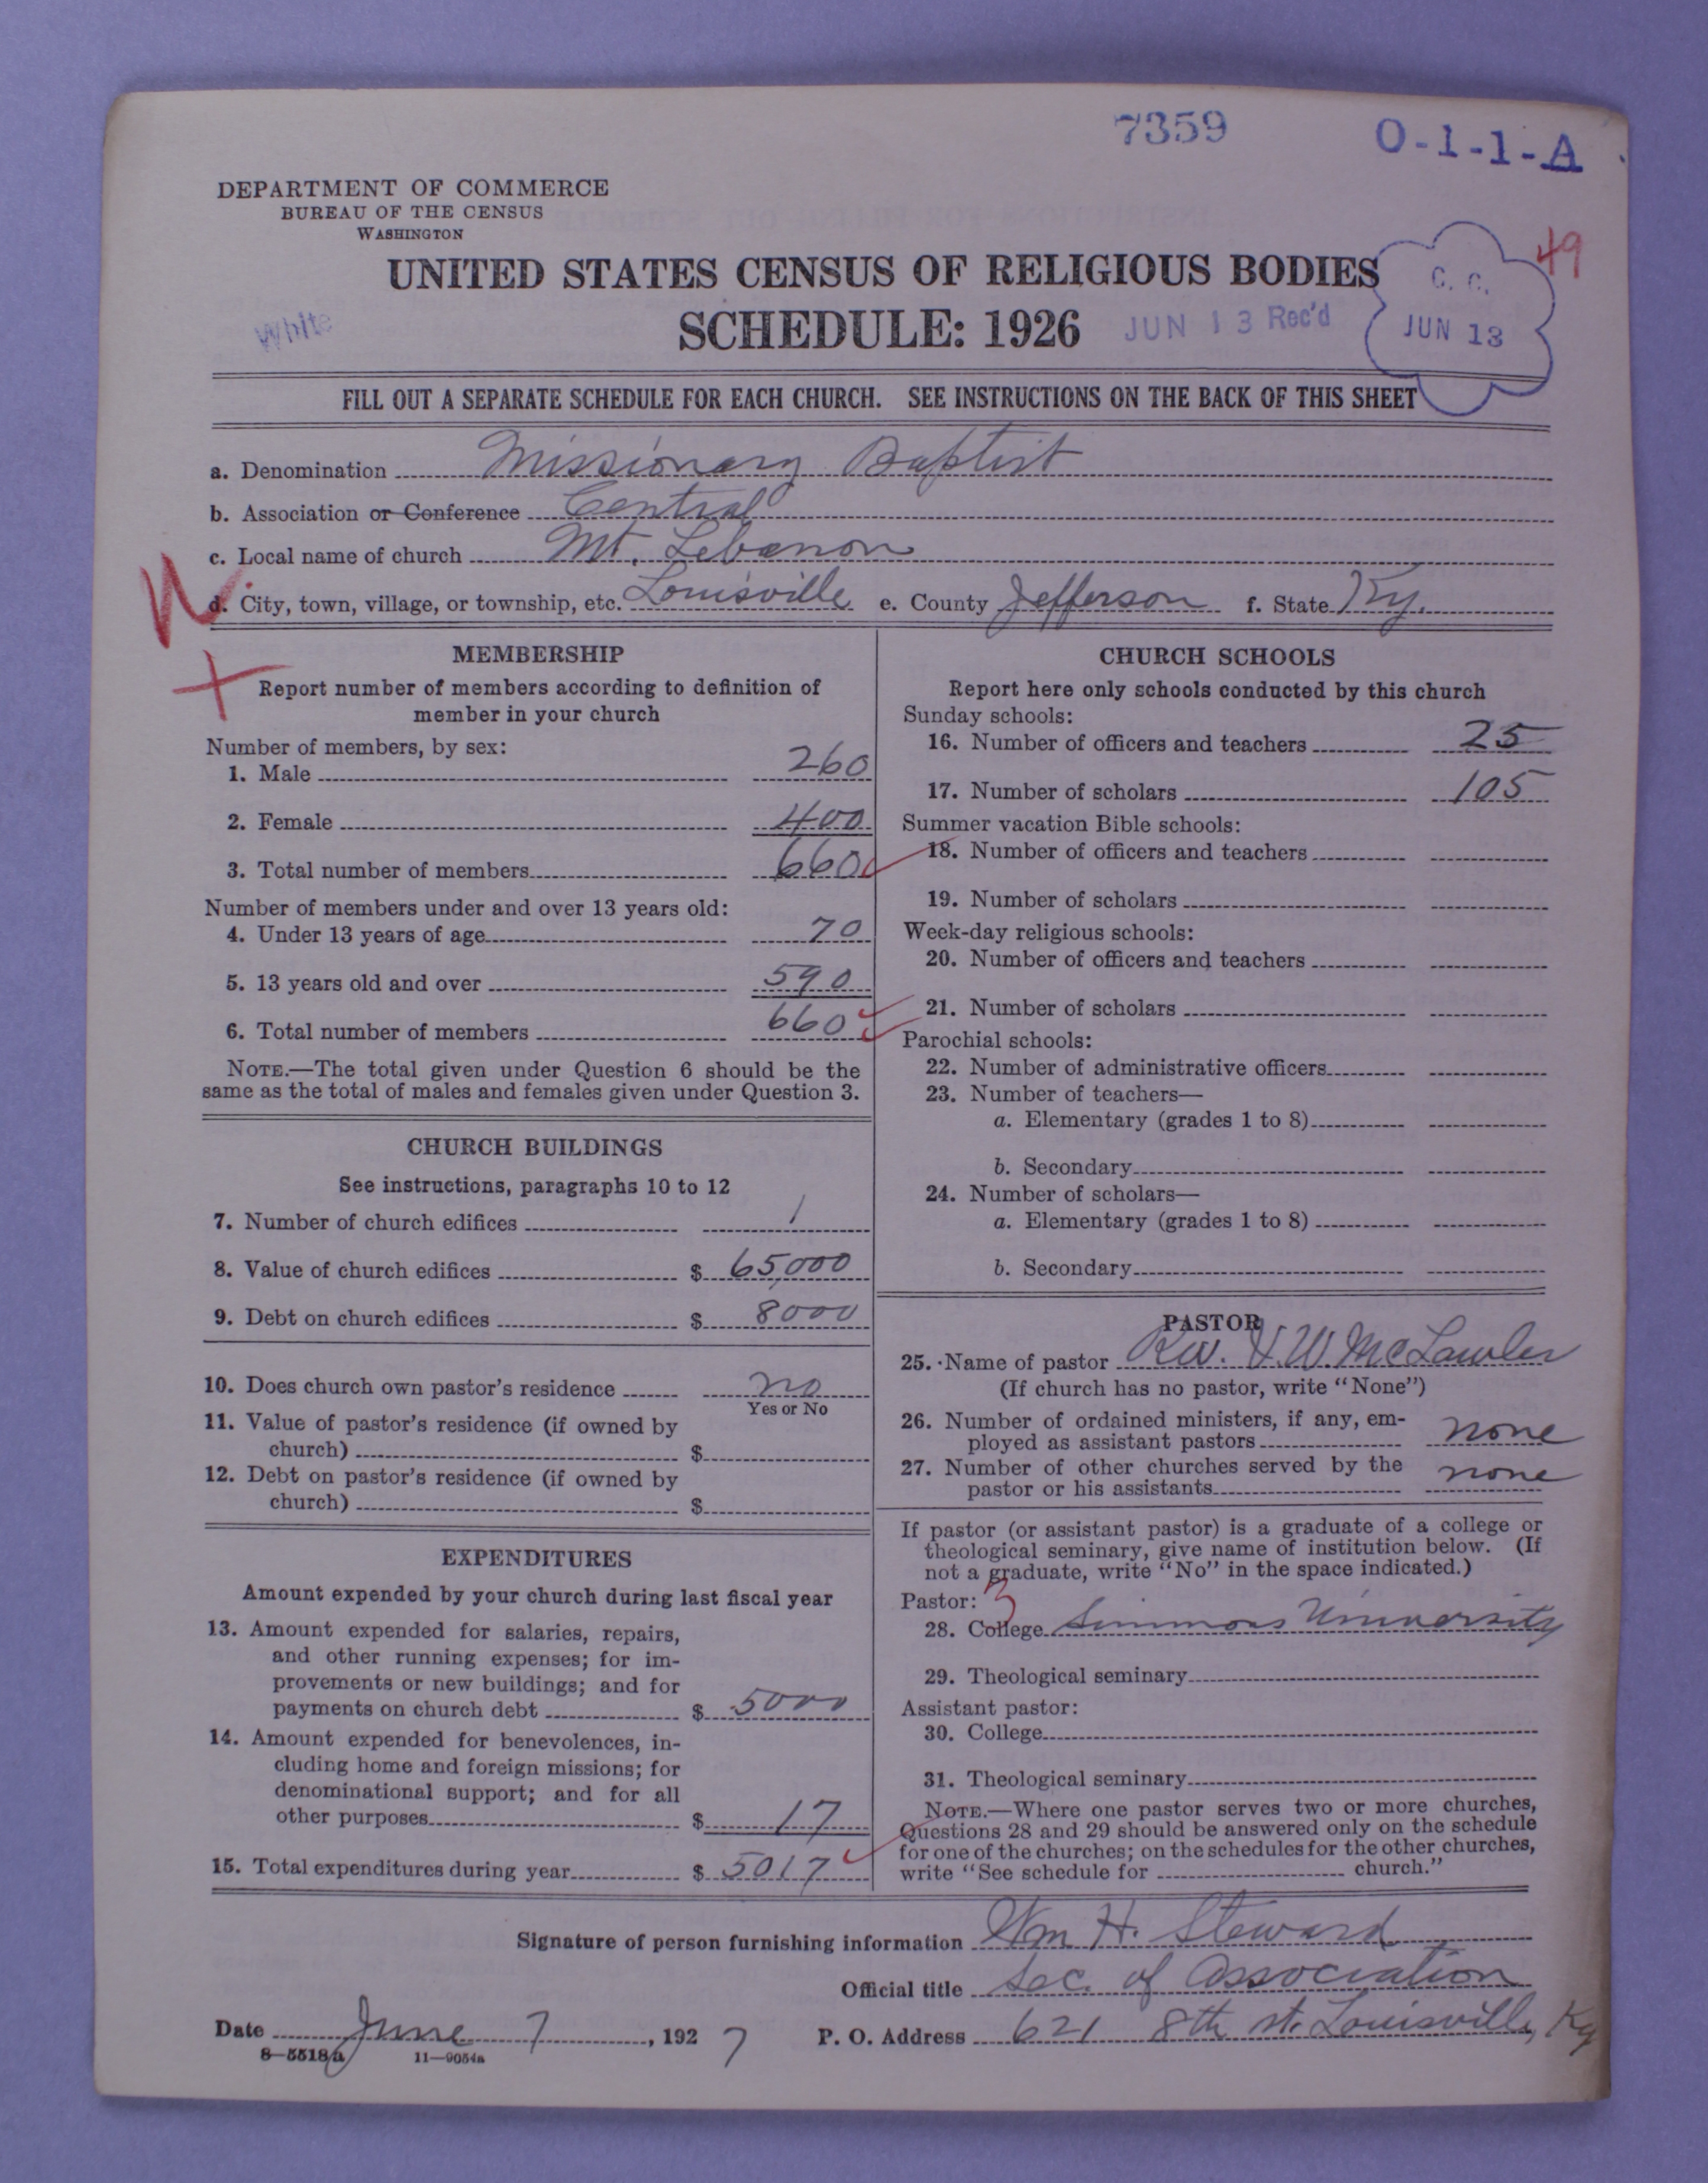 7359
O-1-1-A
DEPARTMENT OF COMMERCE
BUREAU OF THE CENSUS
WASHINGTON
49
UNITED STATES CENSUS OF RELIGIOUS BODIES
C. C.
White
SCHEDULE: 1926
JUN 13 Rec'd
JUN 13
FILL OUT A SEPARATE SCHEDULE FOR EACH CHURCH. SEE INSTRUCTIONS ON THE BACK OF THIS SHEET
a. Denomination Missionary Baptist
b. Association or Conference Central
c. Local name of church Mt. Lebanon
N
d. City, town, village, or township, etc. Louisville e. County Jefferson f. State Ky.
MEMBERSHIP
Report number of members according to definition of
member in your church
Number of members, by sex:
1. Male 260
2. Female 400
3. Total number of members 660
Number of members under and over 13 years old:
4. Under 13 years of age 70
5. 13 years old and over 590
6. Total number of members 660
NOTE.—The total given under Question 6 should be the
same as the total of males and females given under Question 3.
CHURCH BUILDINGS
See instructions, paragraphs 10 to 12
7. Number of church edifices 1
8. Value of church edifices $ 65,000
9. Debt on church edifices $ 8000
10. Does church own pastor's residence no
Yes or No
11. Value of pastor's residence (if owned by
church) $
12. Debt on pastor's residence (if owned by
church) $
EXPENDITURES
Amount expended by your church during last fiscal year
13. Amount expended for salaries, repairs,
and other running expenses; for im-
provements or new buildings; and for
payments on church debt $ 5000
14. Amount expended for benevolences, in-
cluding home and foreign missions; for
denominational support; and for all
other purposes $ 17
15. Total expenditures during year $ 5017
CHURCH SCHOOLS
Report here only schools conducted by this church
Sunday schools:
16. Number of officers and teachers 25
17. Number of scholars 105
Summer vacation Bible schools:
18. Number of officers and teachers
19. Number of scholars
Week-day religious schools:
20. Number of officers and teachers
21. Number of scholars
Parochial schools:
22. Number of administrative officers
23. Number of teachers—
a. Elementary (grades 1 to 8)
b. Secondary
24. Number of scholars—
a. Elementary (grades 1 to 8)
b. Secondary
PASTOR
25. Name of pastor Rev. V. W. McLawler
(If church has no pastor, write "None")
26. Number of ordained ministers, if any, em-
ployed as assistant pastors none
27. Number of other churches served by the
pastor or his assistants none
If pastor (or assistant pastor) is a graduate of a college or
theological seminary, give name of institution below. (If
not a graduate, write "No" in the space indicated.)
Pastor: 3
28. College Simmons University
29. Theological seminary
Assistant pastor:
30. College
31. Theological seminary
NOTE.—Where one pastor serves two or more churches,
Questions 28 and 29 should be answered only on the schedule
for one of the churches; on the schedules for the other churches,
write "See schedule for church."
Signature of person furnishing information Wm H. Steward
Official title Sec. of Association
Date June 7, 1927 P. O. Address 621 8th st. Louisville, Ky
8—5518a 11—9054a